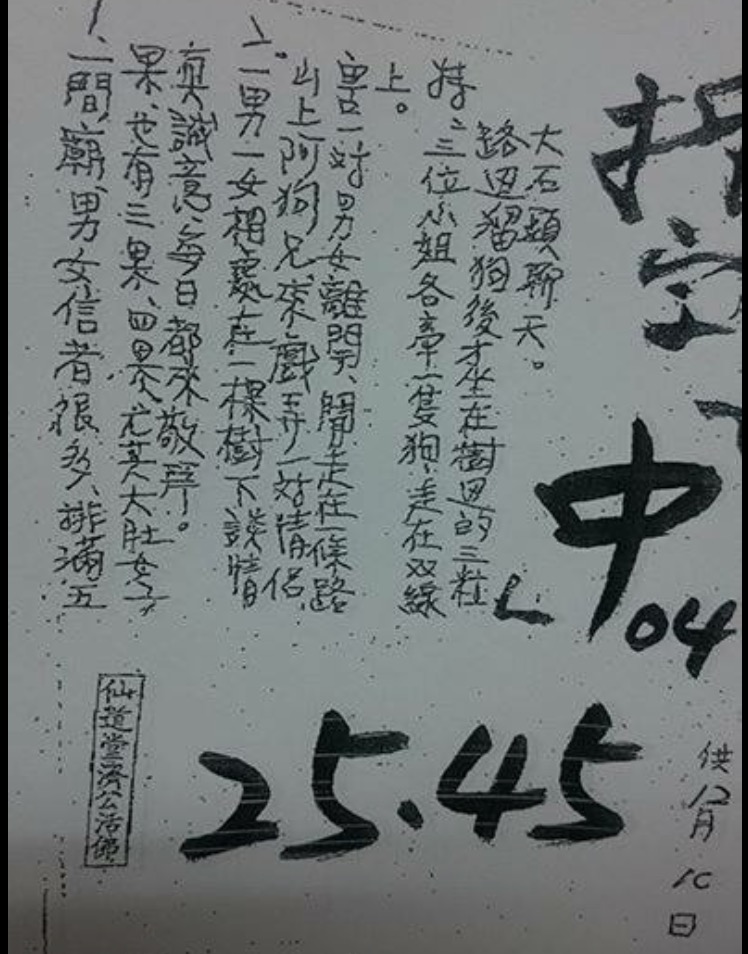 1、一間廟、男女信者很多、排滿五
果、也有三果、四果、尤其大肚女子
真誠意、每日都來敬拜。
2。一男一女相處在一棵樹下談情
山上阿狗兄、來戲弄一對情侶、
害一對男女離開、閒走在一條路
上。
特:三位小姐各牽一隻狗、走在双線
路邊溜狗後才坐在樹邊的三粒
大石頭聊天。
中
04
25.45
供12月10日
仙道堂濟公活佛